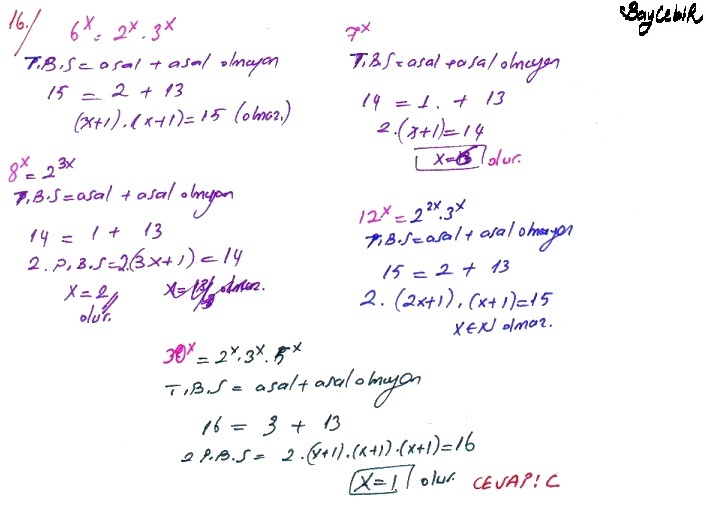 BayCebiR
16./
6^x = 2^x . 3^x
T.B.S = asal + asal olmayan
15 = 2 + 13
(x+1) . (x+1) = 15 (olmaz.)
7^x
T.B.S = asal + asal olmayan
14 = 1 . + 13
2 . (x+1) = 14
x = 6 olur.
8^x = 2^3x
T.B.S = asal + asal olmayan
14 = 1 + 13
2 . P.B.S = 2(3x+1) = 14
x = 2 olmaz.
olur.
12^x = 2^2x . 3^x
T.B.S = asal + asal olmayan
15 = 2 + 13
2 . (2x+1) . (x+1) = 15
x ∈ N olmaz.
30^x = 2^x . 3^x . 5^x
T.B.S = asal + asal olmayan
16 = 3 + 13
2 P.B.S = 2 . (x+1) . (x+1) . (x+1) = 16
x = 1 olur. CEVAP: C